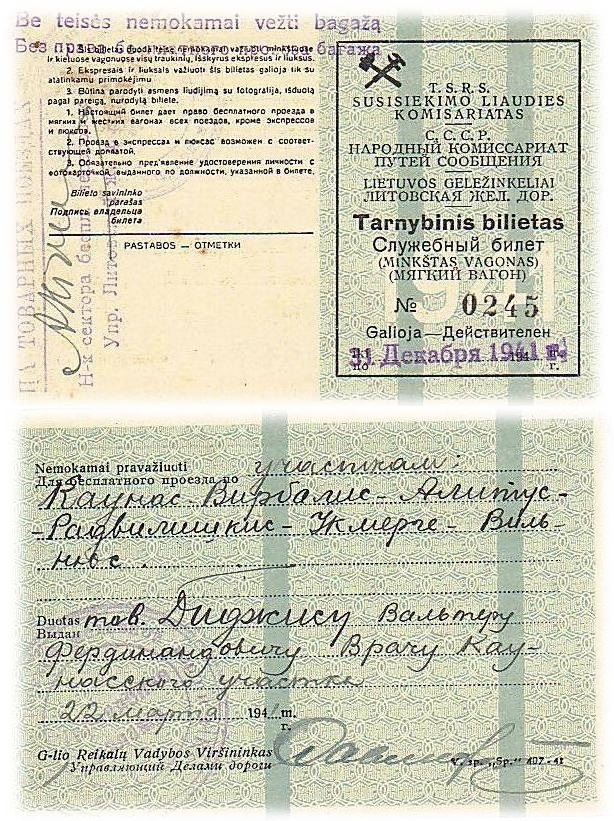 Be teisės nemokamai vežti bagažą
Без права бесплатного провоза багажа
1. Šis bilietas duoda teisę nemokamai važiuoti minkštuose
ir kietuose vagonuose visų traukinių, išskyrus ekspresus ir liuksus.
2. Ekspresais ir liuksais važiuoti šis bilietas galioja tik su
atatinkamu primokėjimu
3. Būtina parodyti asmens liudijimą su fotografija, išduotą
pagal pareigą, nurodytą biliete.
1. Настоящий билет дает право бесплатного проезда в
мягких и жестких вагонах всех поездов, кроме экспрессов
и люксов.
2. Проезд в экспрессах и люксах возможен с соответ-
ствующей доплатой.
3. Обязательно пред'явление удостоверения личности с
фотокарточкой, выданного по должности, указанной в билете.
Bilieto savininko
parašas
Подпись владельца
билета
PASTABOS — ОТМЕТКИ
НА ТОВАРНЫХ
Н-к сектора беспл
Упр. Литов
T. S. R. S.
SUSISIEKIMO LIAUDIES
KOMISARIATAS
С. С. С. Р.
НАРОДНЫЙ КОМИССАРИАТ
ПУТЕЙ СООБЩЕНИЯ
LIETUVOS GELEŽINKELIAI
ЛИТОВСКАЯ ЖЕЛ. ДОР.
Tarnybinis bilietas
Служебный билет
(MINKŠTAS VAGONAS)
(МЯГКИЙ ВАГОН)
1941
№ 0245
Galioja—Действителен
31 Декабря 1941 г.
iki
по
194
г.
Nemokamai pravažiuoti
Для бесплатного проезда по участкам:
Каунас-Вирбалис-Алитус-
-Радвилишкис-Укмерге-Виль-
нюс.
Duotas
Выдан тов. Диджису Вальтеру
Фердинандовичу Врачу Кау-
насского участка
22 марта 1941 m.
г.
G-lio Reikalų Vadybos Viršininkas
Управляющий Делами дороги
V. sp. „Sp." 407 - 41